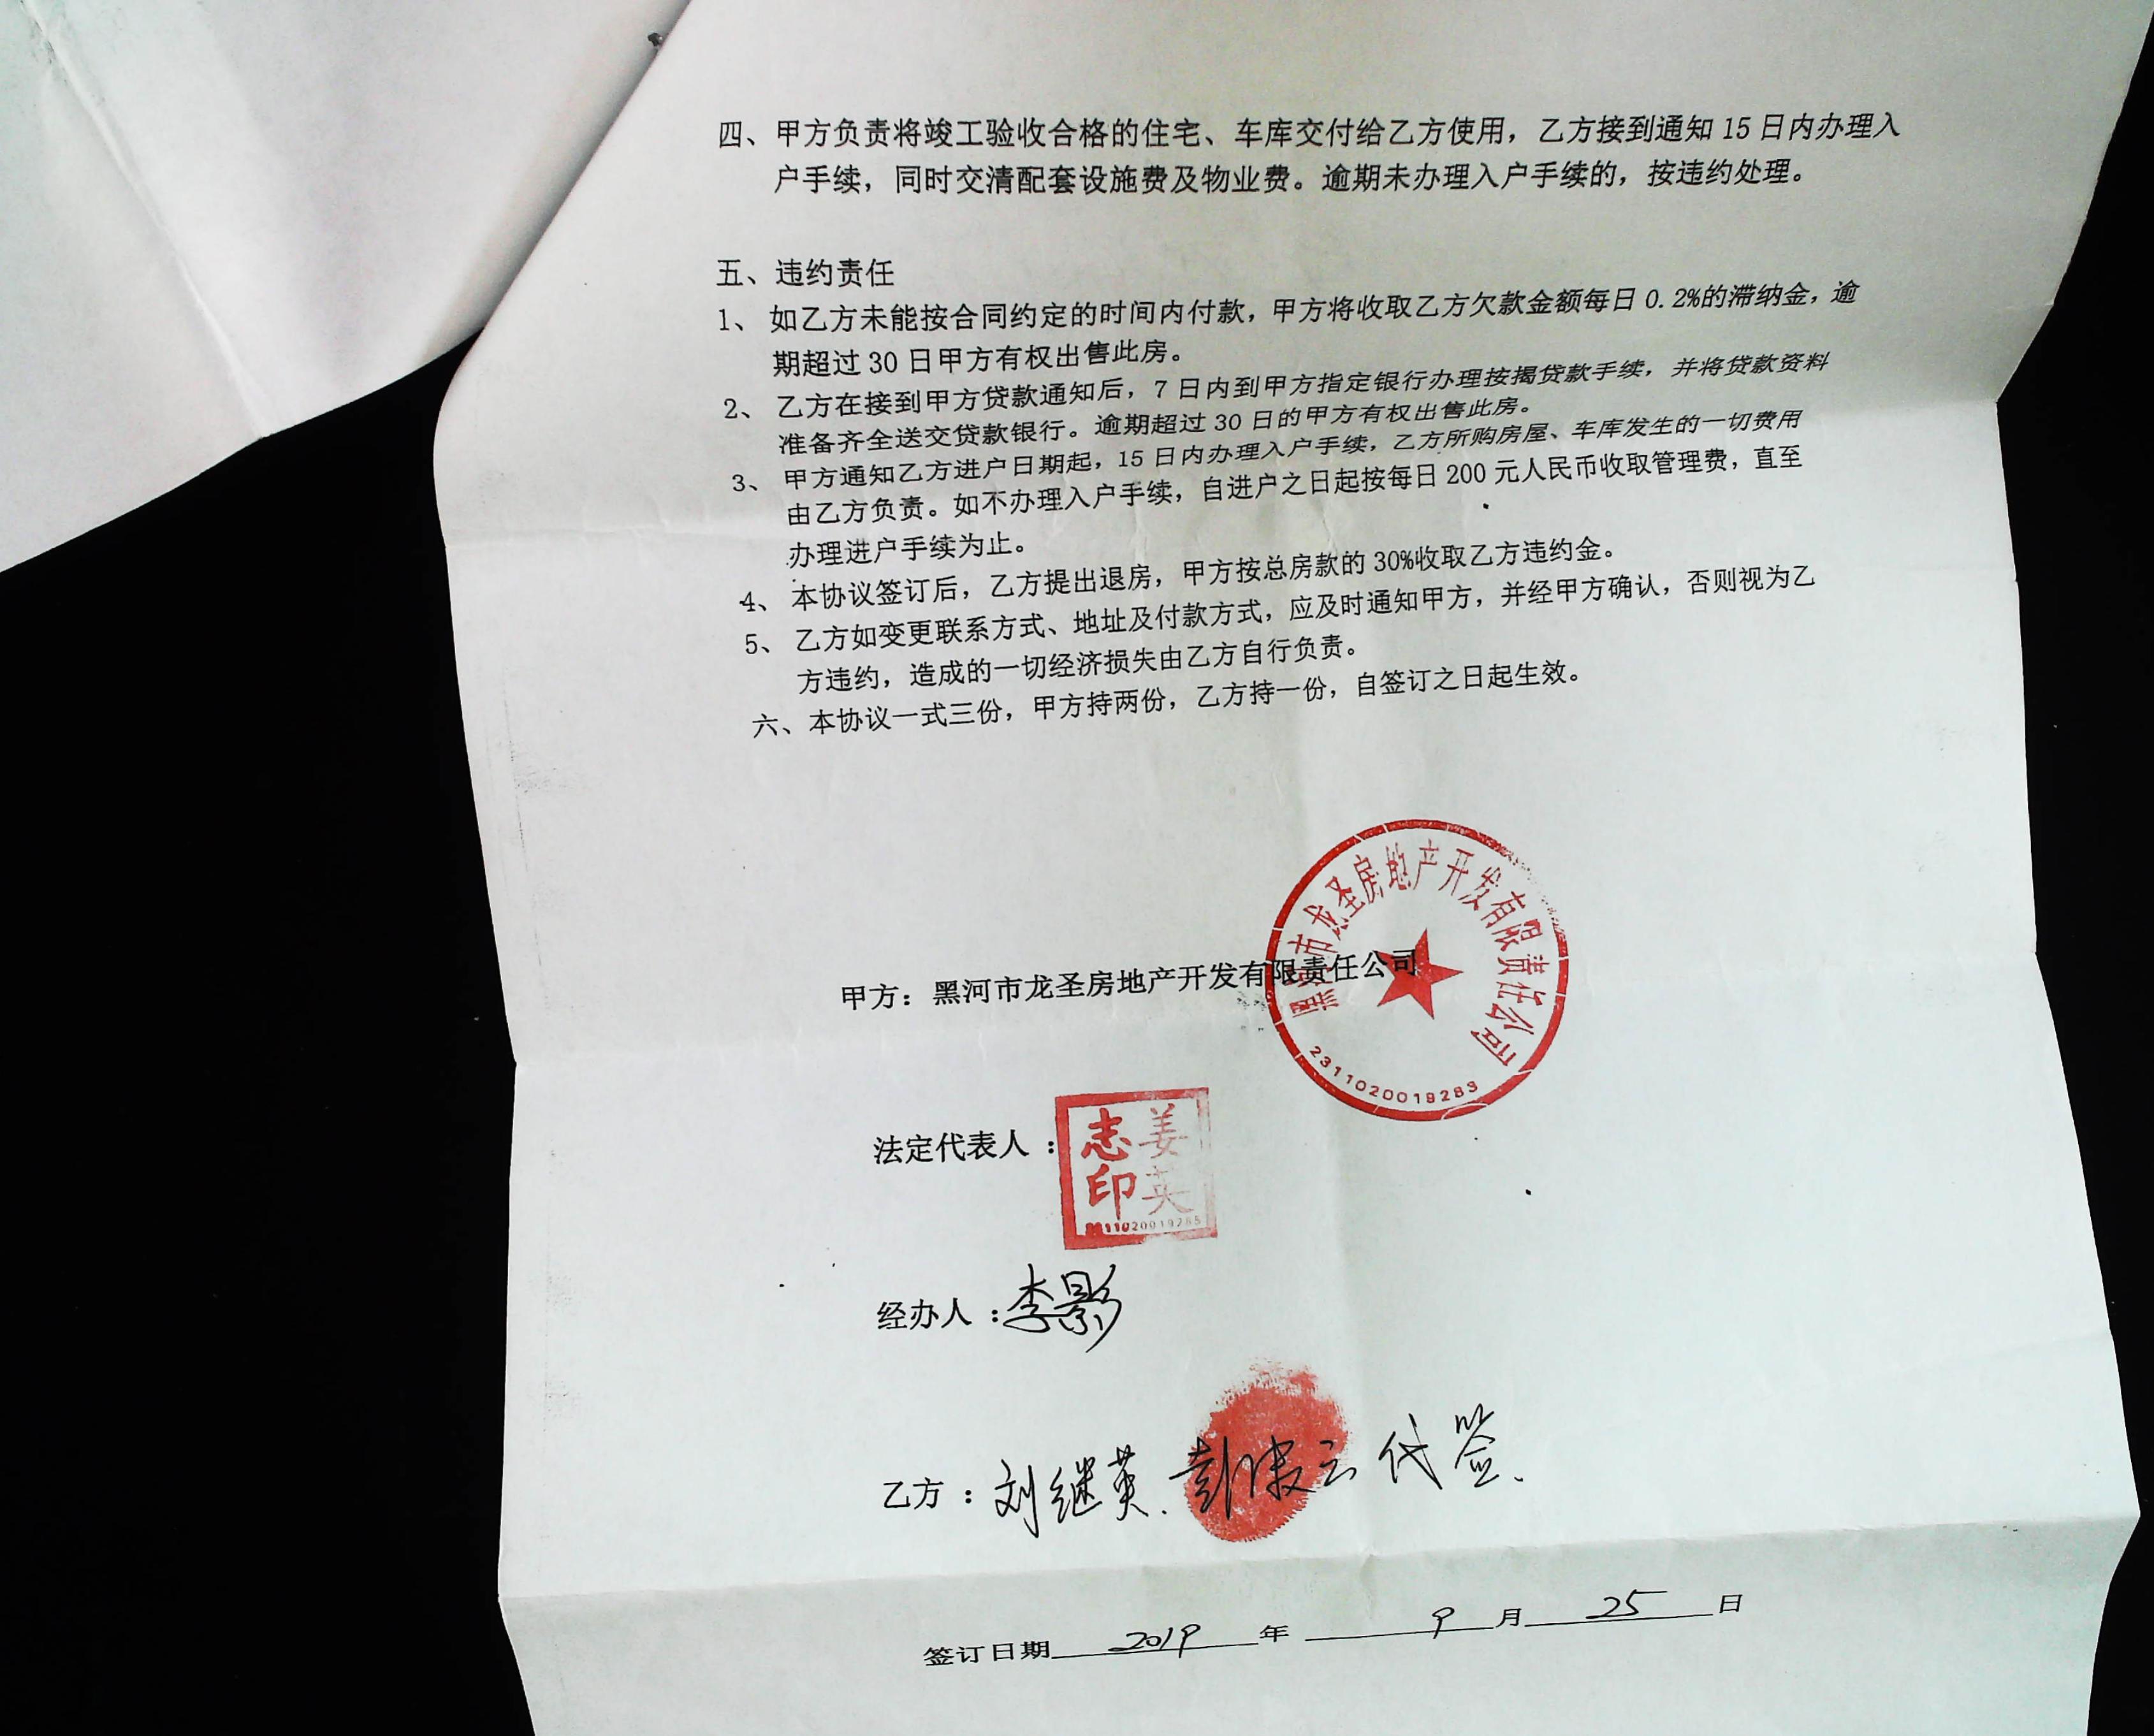 四、甲方负责将竣工验收合格的住宅、车库交付给乙方使用，乙方接到通知 15 日内办理入
户手续，同时交清配套设施费及物业费。逾期未办理入户手续的，按违约处理。
五、违约责任
1、 如乙方未能按合同约定的时间内付款，甲方将收取乙方欠款金额每日 0.2%的滞纳金，逾
期超过 30 日甲方有权出售此房。
2、 乙方在接到甲方贷款通知后，7 日内到甲方指定银行办理按揭贷款手续，并将贷款资料
准备齐全送交贷款银行。逾期超过 30 日的甲方有权出售此房。
3、 甲方通知乙方进户日期起，15 日内办理入户手续，乙方所购房屋、车库发生的一切费用
由乙方负责。如不办理入户手续，自进户之日起按每日 200 元人民币收取管理费，直至
办理进户手续为止。
4、 本协议签订后，乙方提出退房，甲方按总房款的 30%收取乙方违约金。
5、 乙方如变更联系方式、地址及付款方式，应及时通知甲方，并经甲方确认，否则视为乙
方违约，造成的一切经济损失由乙方自行负责。
六、本协议一式三份，甲方持两份，乙方持一份，自签订之日起生效。
黑河市龙圣房地产开发有限责任公司
甲方：黑河市龙圣房地产开发有限责任公司
2311020019283
法定代表人：
姜志英印
11020019285
经办人：李影
乙方：刘继英.彭 云 代签、
签订日期 2019 年 9 月 25 日